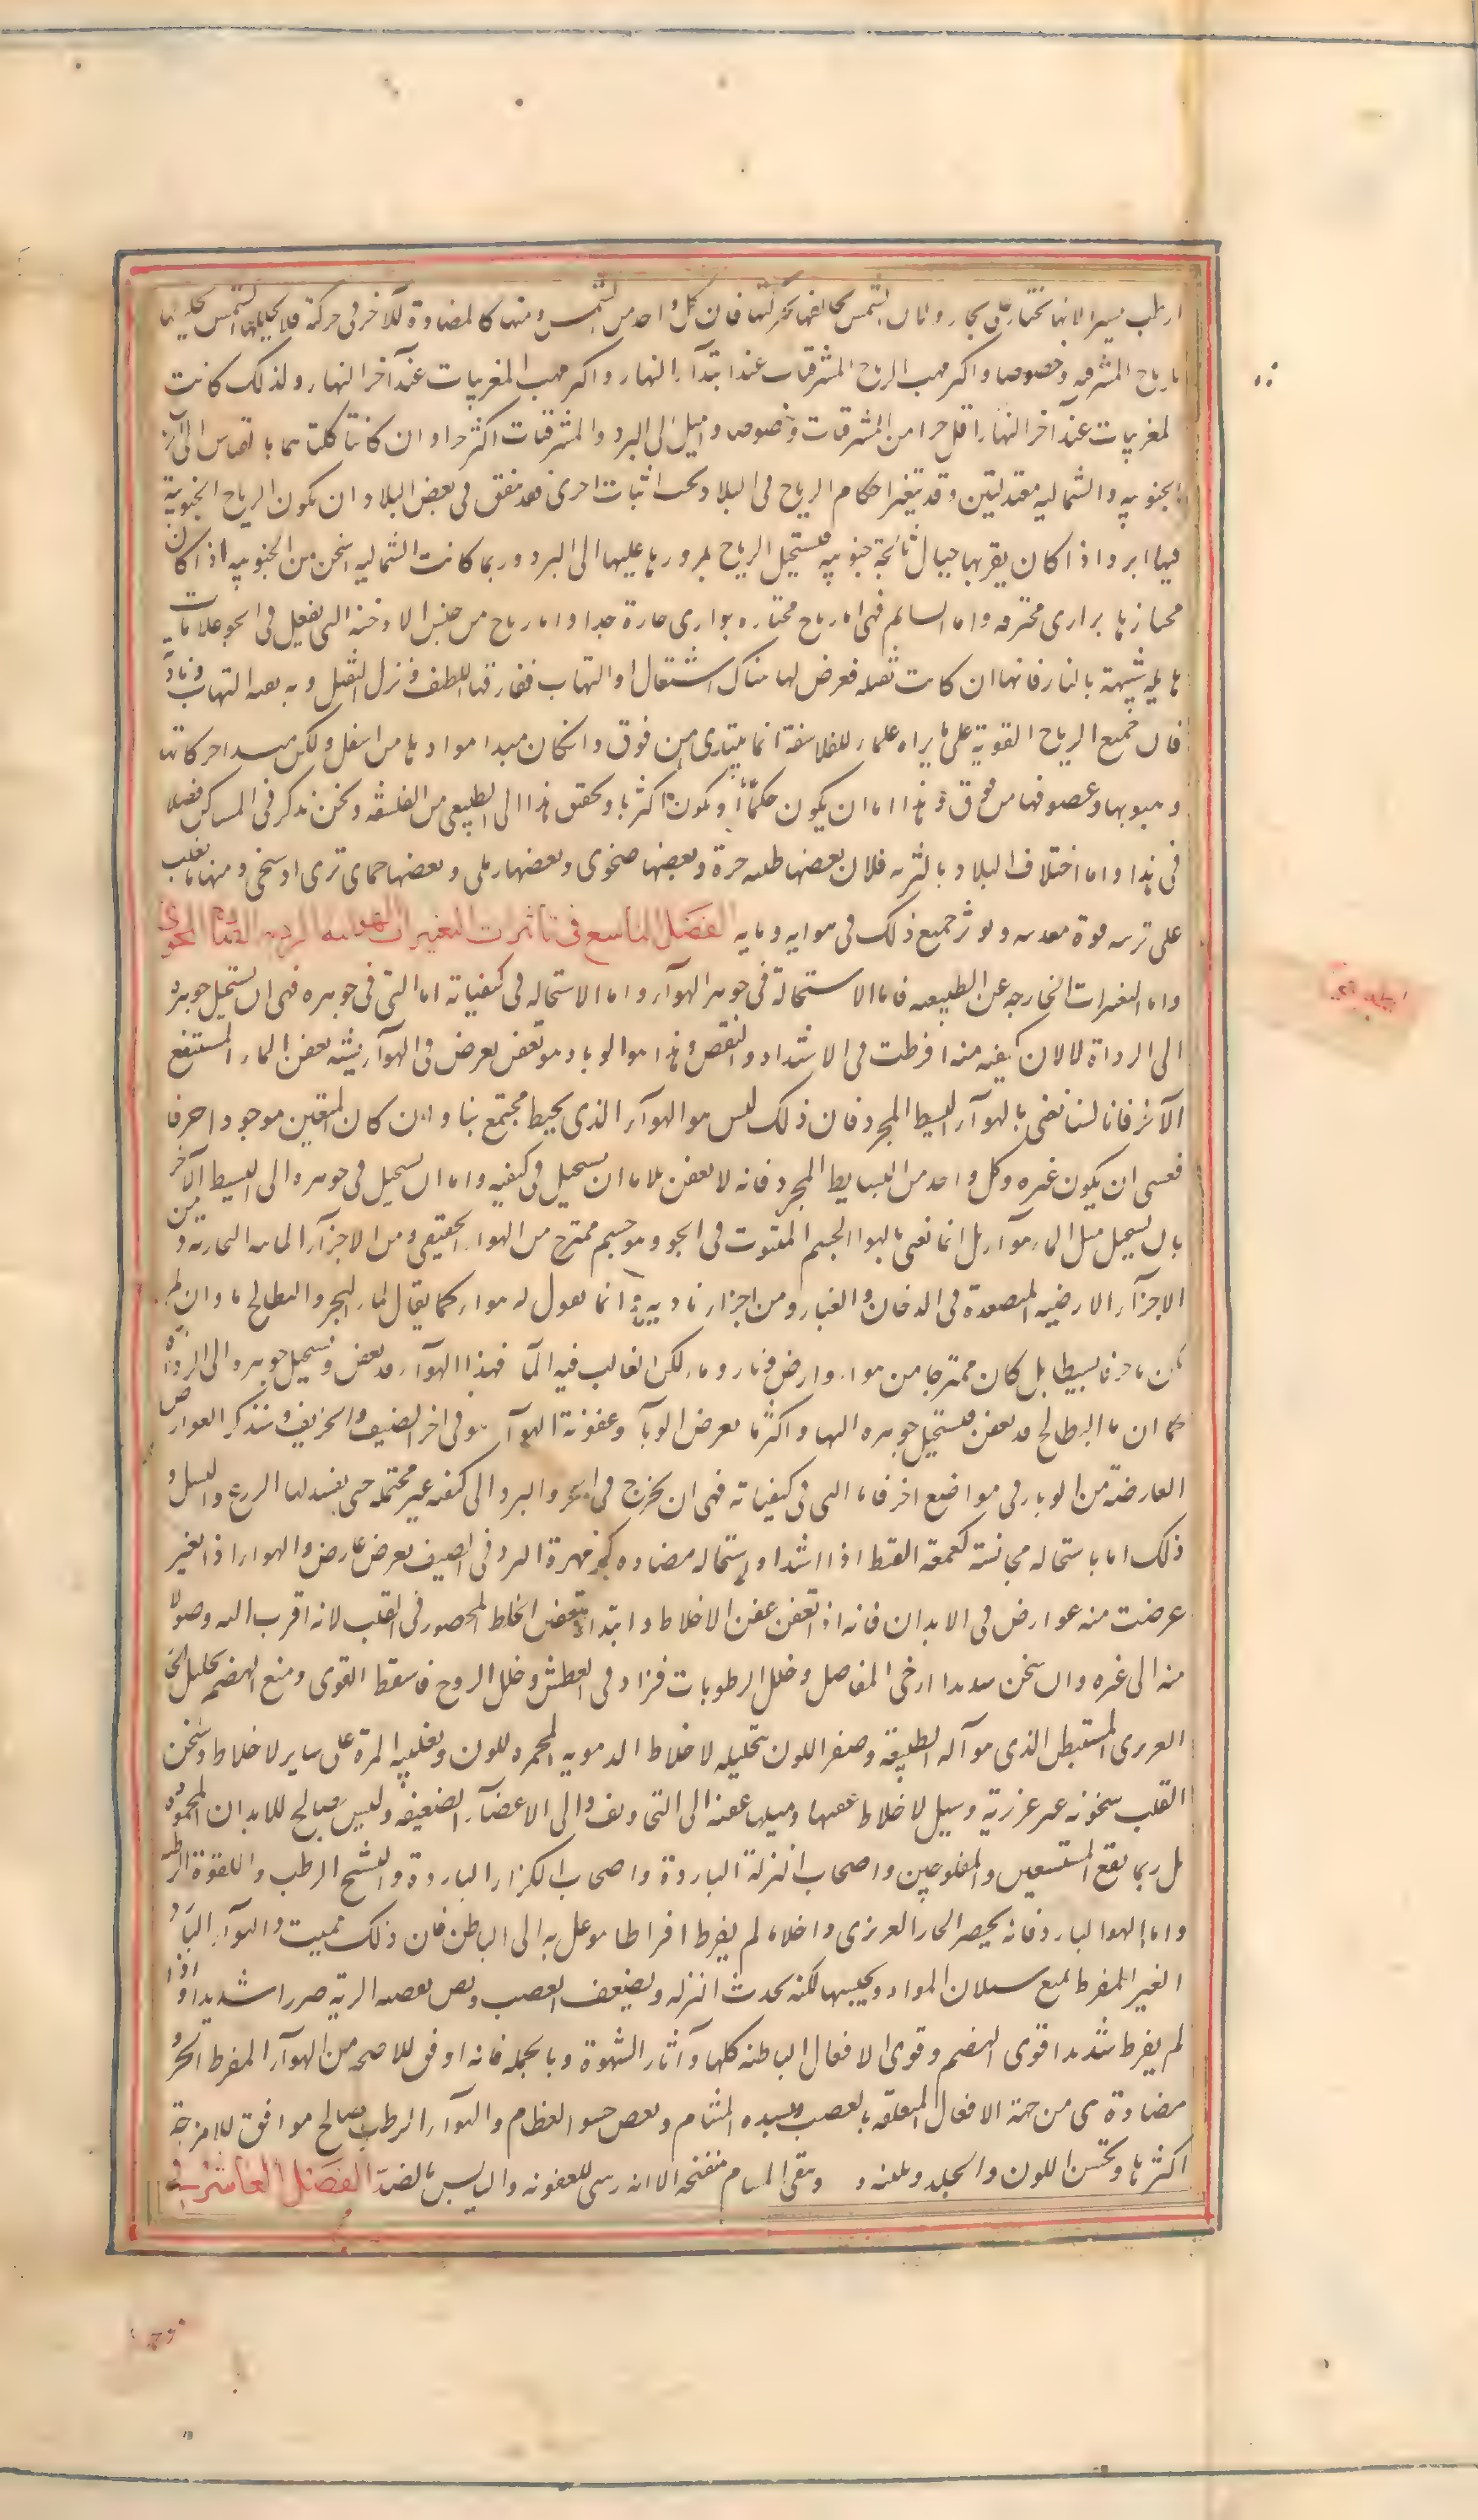 ارطب يسيرا لانها تجتاز على بحار ولان الشمس تخالفها بحركتها فان كل واحد من الشمس ومنها كالمضادة للآخر فى حركته فلا يحللها الشمس تحليلها
لرياح المشرقيه وخصوصا واكثر مهب الرياح المشرقيات عند ابتدآء النهار واكثر مهب المغربيات عند آخر النهار ولذلك كانت
لمغربيات عند آخر النهار اقل حرا من المشرقيات وخصوصا واميل الى البرد والمشرقيات اكثر حرا وان كانتا كلتاهما بالقياس الى الرياح
الجنوبيه والشماليه معتدلتين وقد يتغير احكام الرياح فى البلاد بحسب اسباب اخرى فقد يتفق فى بعض البلاد ان يكون الرياح الجنوبية
فيها ابرد اذا كان بقربها جبال ثالجة جنوبيه فيستحيل الرياح بمرورها عليها الى البرد وربما كانت الشماليه اسخن من الجنوبيه اذا كان
مجتازها برارى محترقه واما السمايم فهى اما رياح مجتازه بوارى حارة جدا واما رياح من جنس الادخنه التى يفعل فى الجو علامات
هايلة شبيهة بالنار فانها ان كانت ثقيله فعرض لها هناك اشتعال او التهاب ففارقها اللطف ونزل الثقيل وبه بقيه التهاب ونارية
فان جميع الرياح القوية على ما يراه علماء الفلاسفة انما يبتدى من فوق وان كان مبدا موادها من اسفل ولكن مبدا حركاتها
وهبوبها وعصوفها من فوق وهذا اما ان يكون حكما او يكون اكثريا وتحقيق هذا الى الطبيعى من الفلسفة ونحن نذكر فى المساكن فصلا
فى هذا واما اختلاف البلاد بالتربه فلان بعضها طينه حرة وبعضها صخرى وبعضها رملى وبعضها حماى ترى او سبخى ومنها ما يغلب
على تربته قوة معدنيه ويوثر جميع ذلك فى هوايه ومايه الفصل التاسع فى تاثيرات التغيرات الهوائيه الرديه المضادة للمجرى
واما التغيرات الخارجه عن الطبيعه فاما لاستحالة فى جوهر الهوآء واما لاستحاله فى كيفياته اما التى فى جوهره فهى ان يستحيل جوهره
الى الرداة لا لان كيفيه منه افرطت فى الاشتداد والنقص وهذا هو الوباء وهو تعفن يعرض فى الهوآء يشبه تعفن الماء المستنقع
الآجن فانا لسنا نعنى بالهوآء البسيط المجرد فان ذلك ليس هو الهوآء الذى يحيط مجتمع بنا وان كان المتيقن موجودا صرفا
فعسى ان يكون غيره وكل واحد من البسايط المجرد فانه لا يعفن بل اما ان يستحيل فى كيفيه واما ان يستحيل فى جوهره الى البسيط الآخر
بان يستحيل مثل الماء هوآء بل انما نعنى بالهوا الجسم المبثوث فى الجو وهو جسم ممتزج من الهواء الحقيقى ومن الاجزآء المائيه البخاريه ومن
الاجزآء الارضيه المتصعدة فى الدخان والغبار ومن اجزاء نارية وانما نقول له هواء كما يقال لماء البحر والبطايح ماء وان لم
يكن ماء صرفا بسيطا بل كان ممتزجا من هواء وارض ونار وماء لكن الغالب فيه الما فهذا الهوآء قد يعفن ويستحيل جوهره الى الرداة
كما ان ماء البطايح قد يعفن فيستحيل جوهره اليها واكثر ما يعرض الوبآ وعفونة الهوآء هو فى اخر الصيف والخريف وسنذكر العوارض
العارضة من الوباء فى مواضع اخر فاما التى فى كيفياته فهى ان يخرج فى الحر والبرد الى كيفيه غير محتمله حتى يفسد لها الزرع والنسل و
ذلك اما باستحاله مجانسة كمعمعة القيظ اذا اشتد او استحاله مضاده كزمهرة البرد فى الصيف بعرض عارض والهواء اذا تغير
عرضت منه عوارض فى الابدان فانه اذا تعفن عفن الاخلاط وابتدا بتعفين الخلط المحصور فى القلب لانه اقرب اليه وصولا
منه الى غيره وان سخن شديدا ارخى المفاصل وحلل الرطوبات فزاد فى العطش وحلل الروح فاسقط القوى ومنع الهضم بتحليل الحار
الغريزى المستبطن الذى هو آلة الطبيعة وصفر اللون بتحليله الاخلاط الدمويه المحمره للون وتغليبه المرة على ساير الاخلاط وسخن
القلب سخونه غير غريزية وسيل الاخلاط عفنها وميلها عفنه الى التجاويف والى الاعضآء الضعيفه وليس بصالح للابدان المحموده
بل ربما نفع المستسقين والمفلوجين واصحاب النزلة الباردة واصحاب الكزاز الباردة والتشنج الرطب واللقوة الرطبه
واما الهوا البارد فانه يحصر الحار الغريزى داخلا ما لم يفرط افراطا يتوغل به الى الباطن فان ذلك مميت والهوآء البارد
الغير المفرط يمنع سيلان المواد ويحبسها لكنه يحدث النزله ويضعف العصب ويضر بقصبه الرية ضررا شديدا واذا
لم يفرط شديدا قوى الهضم وقوى الافعال الباطنه كلها وآثار الشهوة وبالجمله فانه اوفق للاصحه من الهوآء المفرط الحر
مضادة هى من جهة الافعال المتعلقه بالعصب وبسده المسام وبعصر حشو العظام والهوآء الرطب صالح موافق للامزجة
اكثرها ويحسن اللون والجلد ويلينه و ويبقى المسام منفتحه الا انه يهيى للعفونه واليابس بالضد الفصل العاشر فى